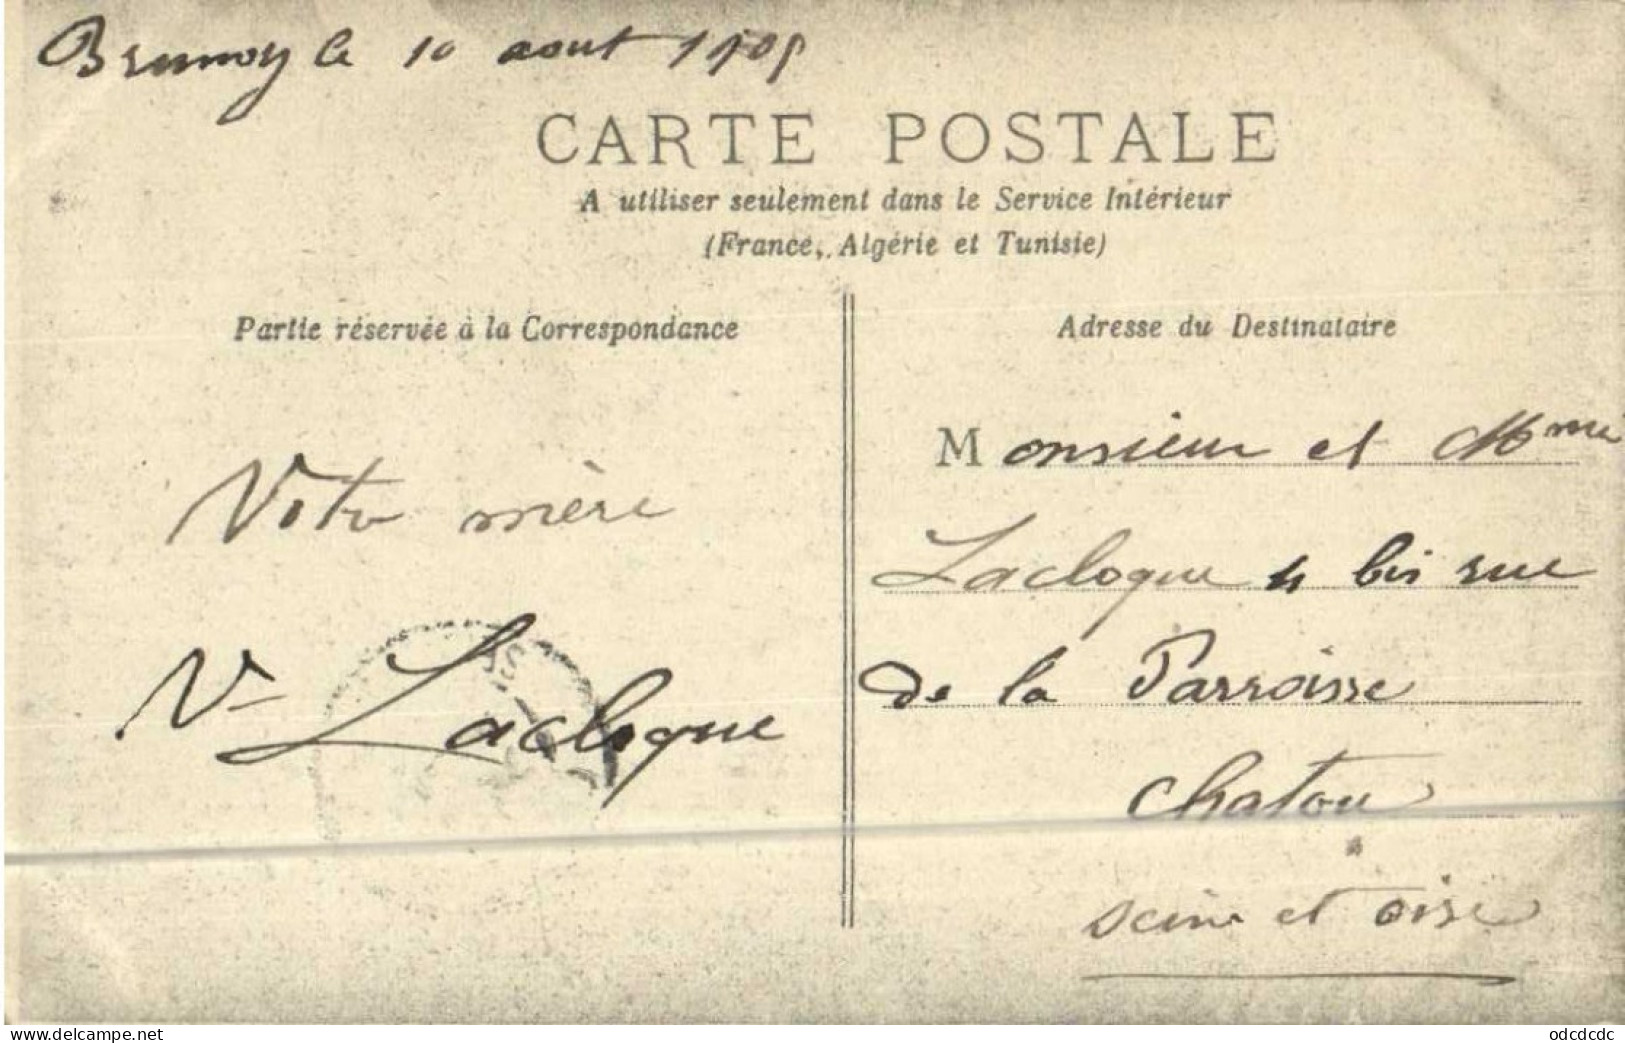 Brunoy le 10 aout 1905
CARTE POSTALE
A utiliser seulement dans le Service Intérieur
(France, Algérie et Tunisie)
Partie réservée à la Correspondance
Adresse du Destinataire
Votre mère
Ve Laclogue
Monsieur et Mme
Laclogue 4 bis rue
de la Parroisse
Chatou
Seine et oise
www.delcampe.net
odcdcdc